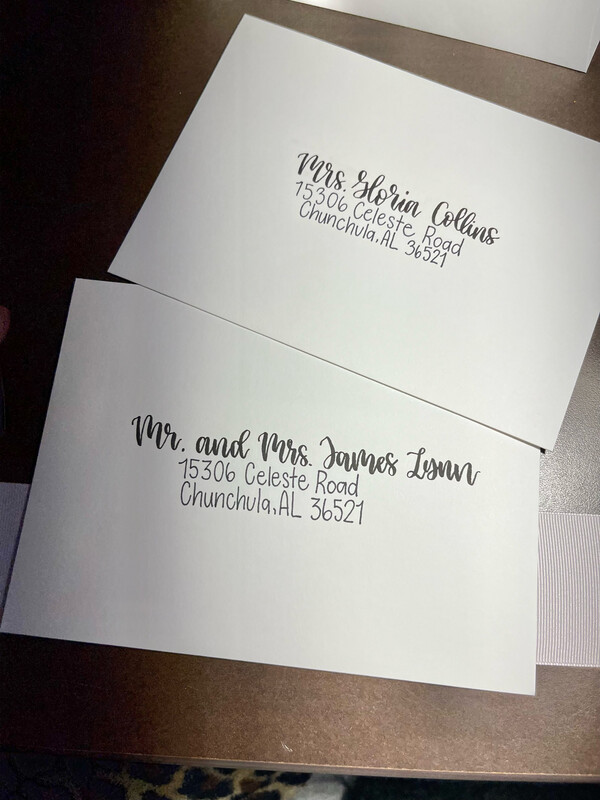 Mrs. Gloria Collins
15306 Celeste Road
Chunchula, AL 36521
Mr. and Mrs. James Lynn
15306 Celeste Road
Chunchula, AL 36521